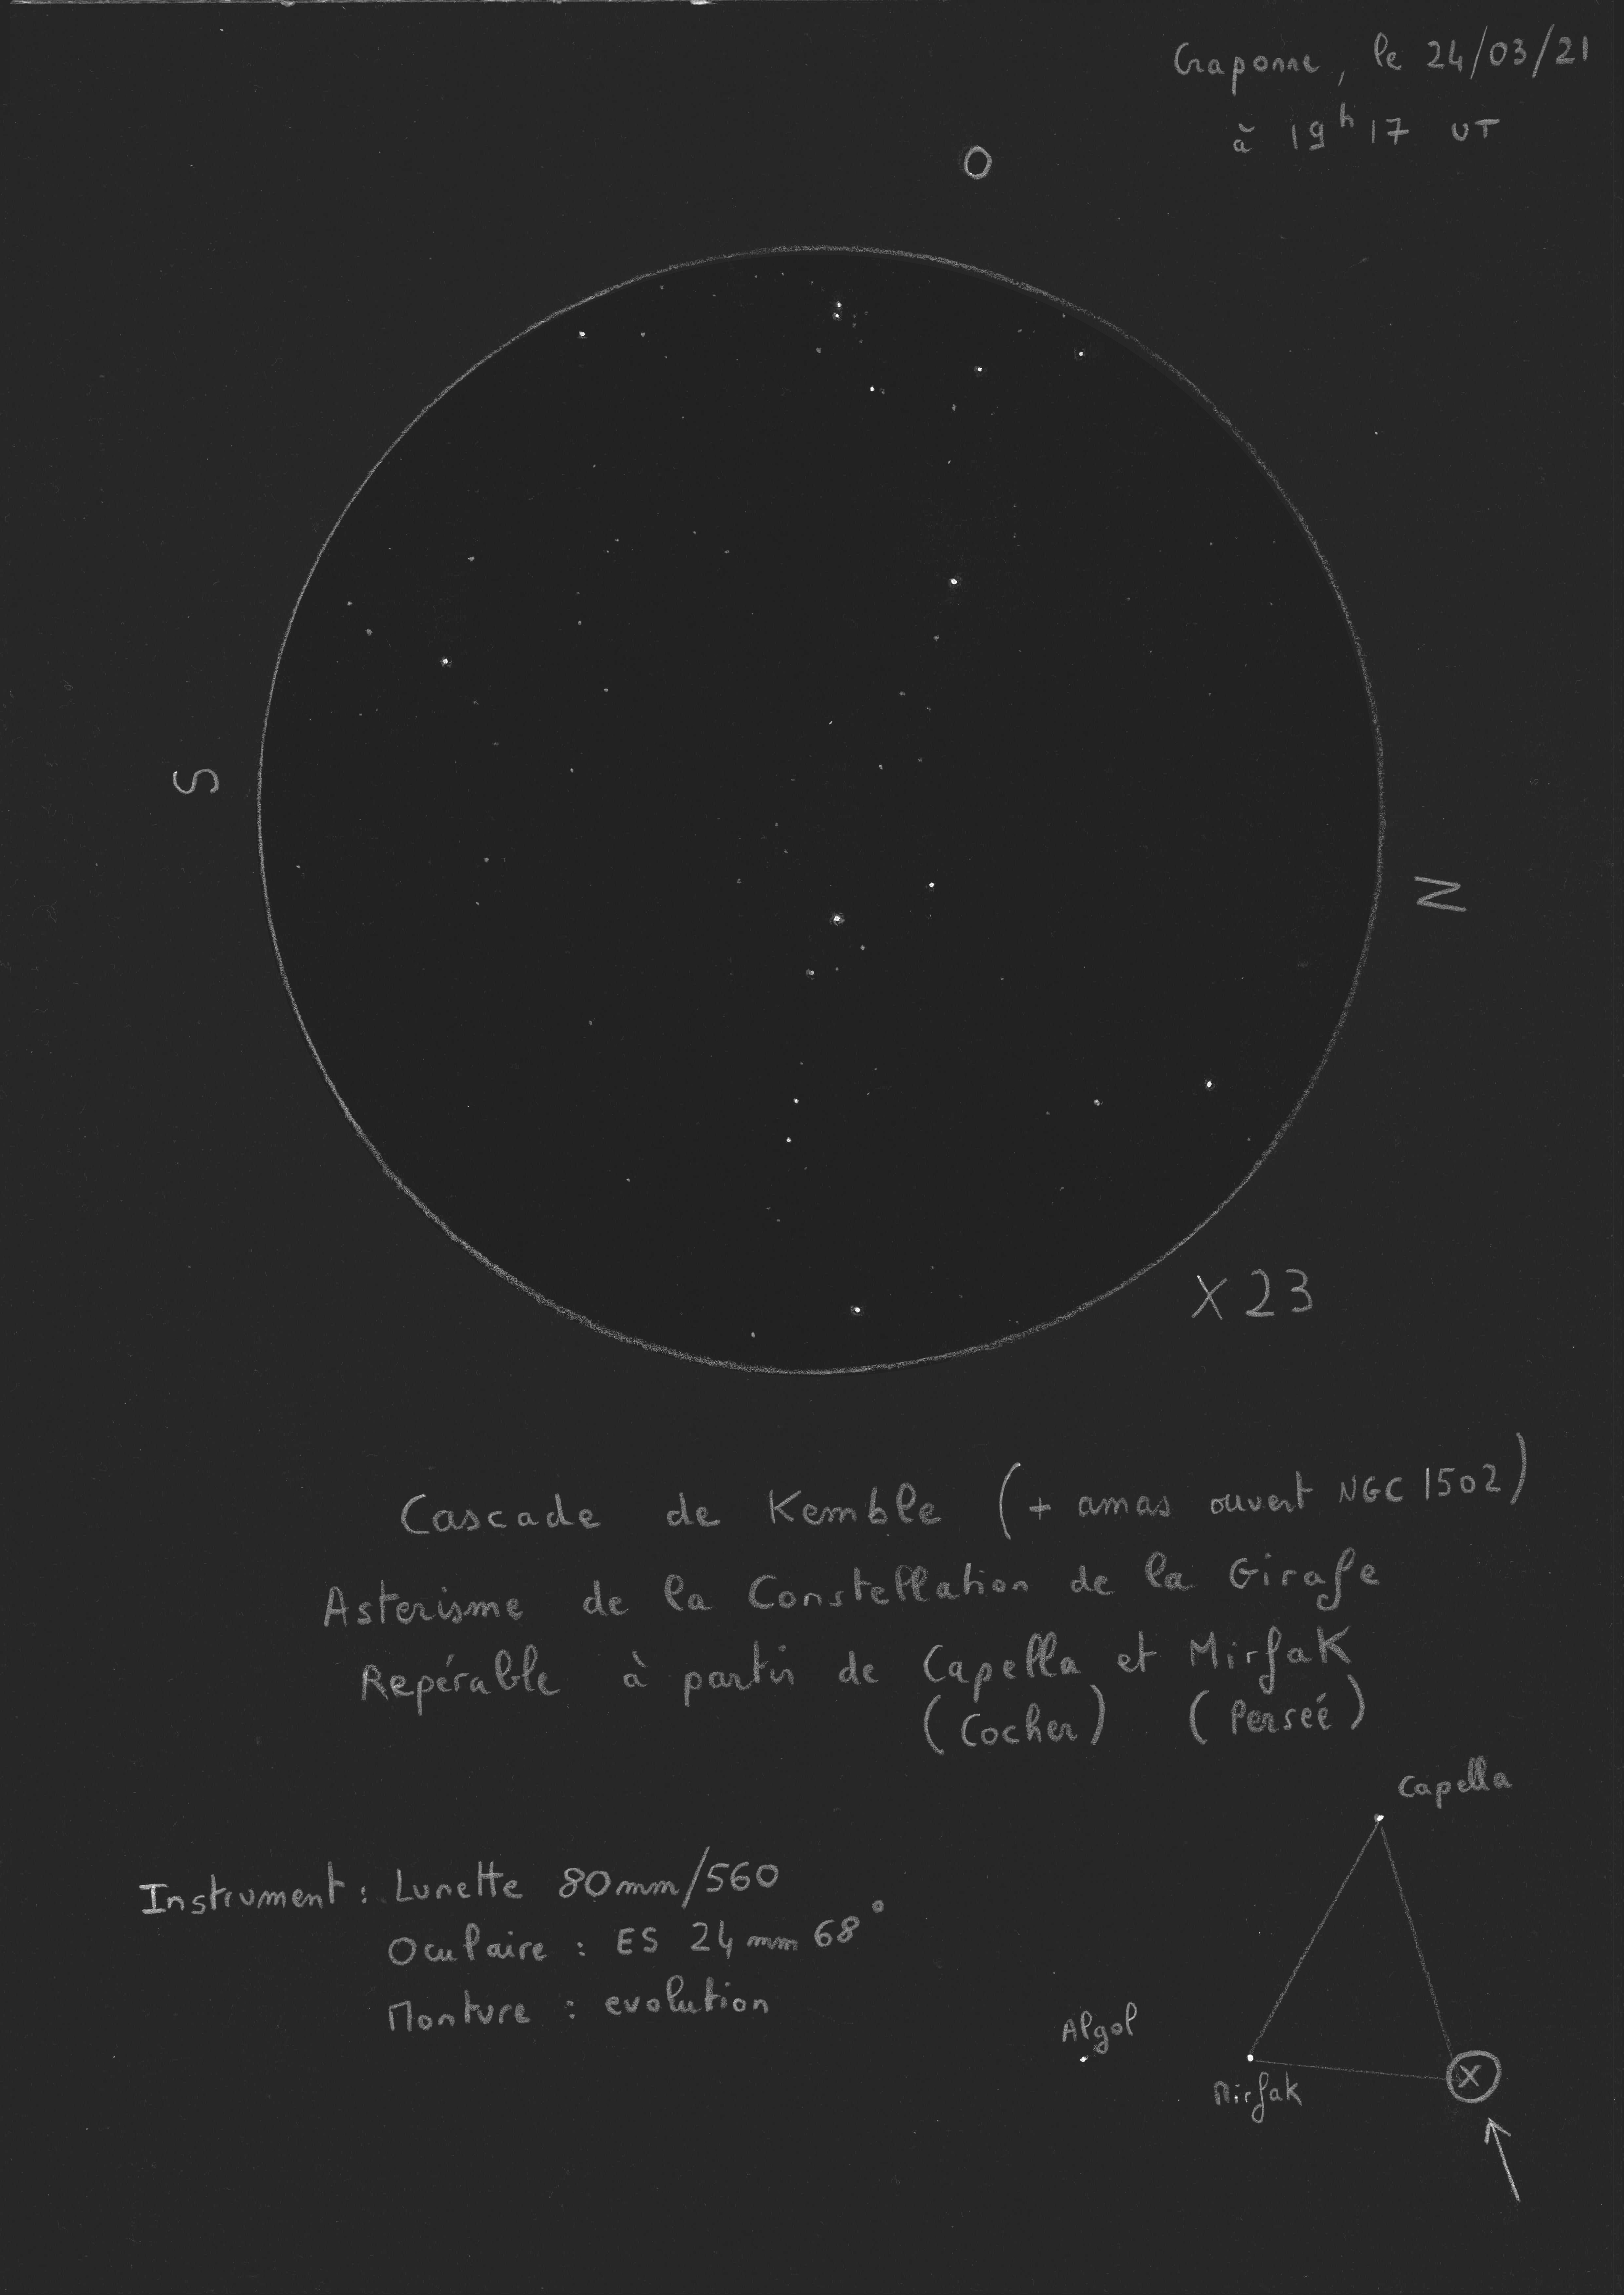 Craponne, le 24/03/21
à 19h17 UT
O
S
N
X 23
Cascade de Kemble (+ amas ouvert NGC 1502)
Asterisme de la Constellation de la Girafe
Repérable à partir de Capella et Mirfak
(Cocher) (Perseé)
Capella
Instrument : Lunette 80mm/560
Oculaire : ES 24mm 68°
Monture : evolution
Algol
Mirfak
X